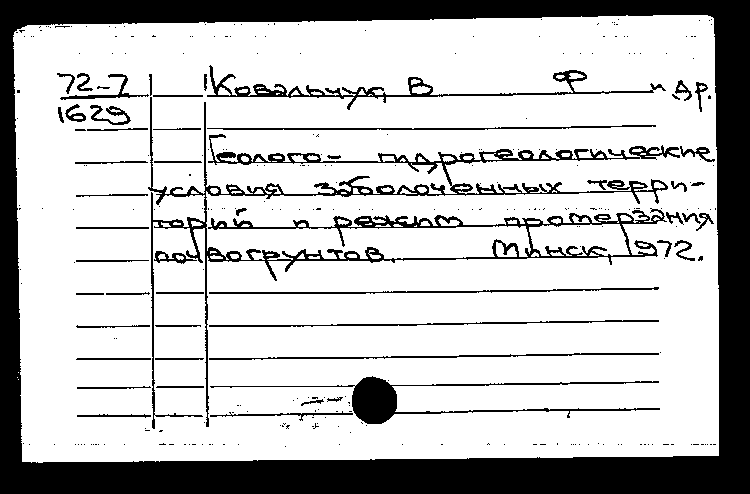 72-7 Ковальчук, В Ф и др.
1629
Геолого- гидрогеологические
условия заболоченных терри-
торий и режим промерзания
почвогрунтов. Минск, 1972.